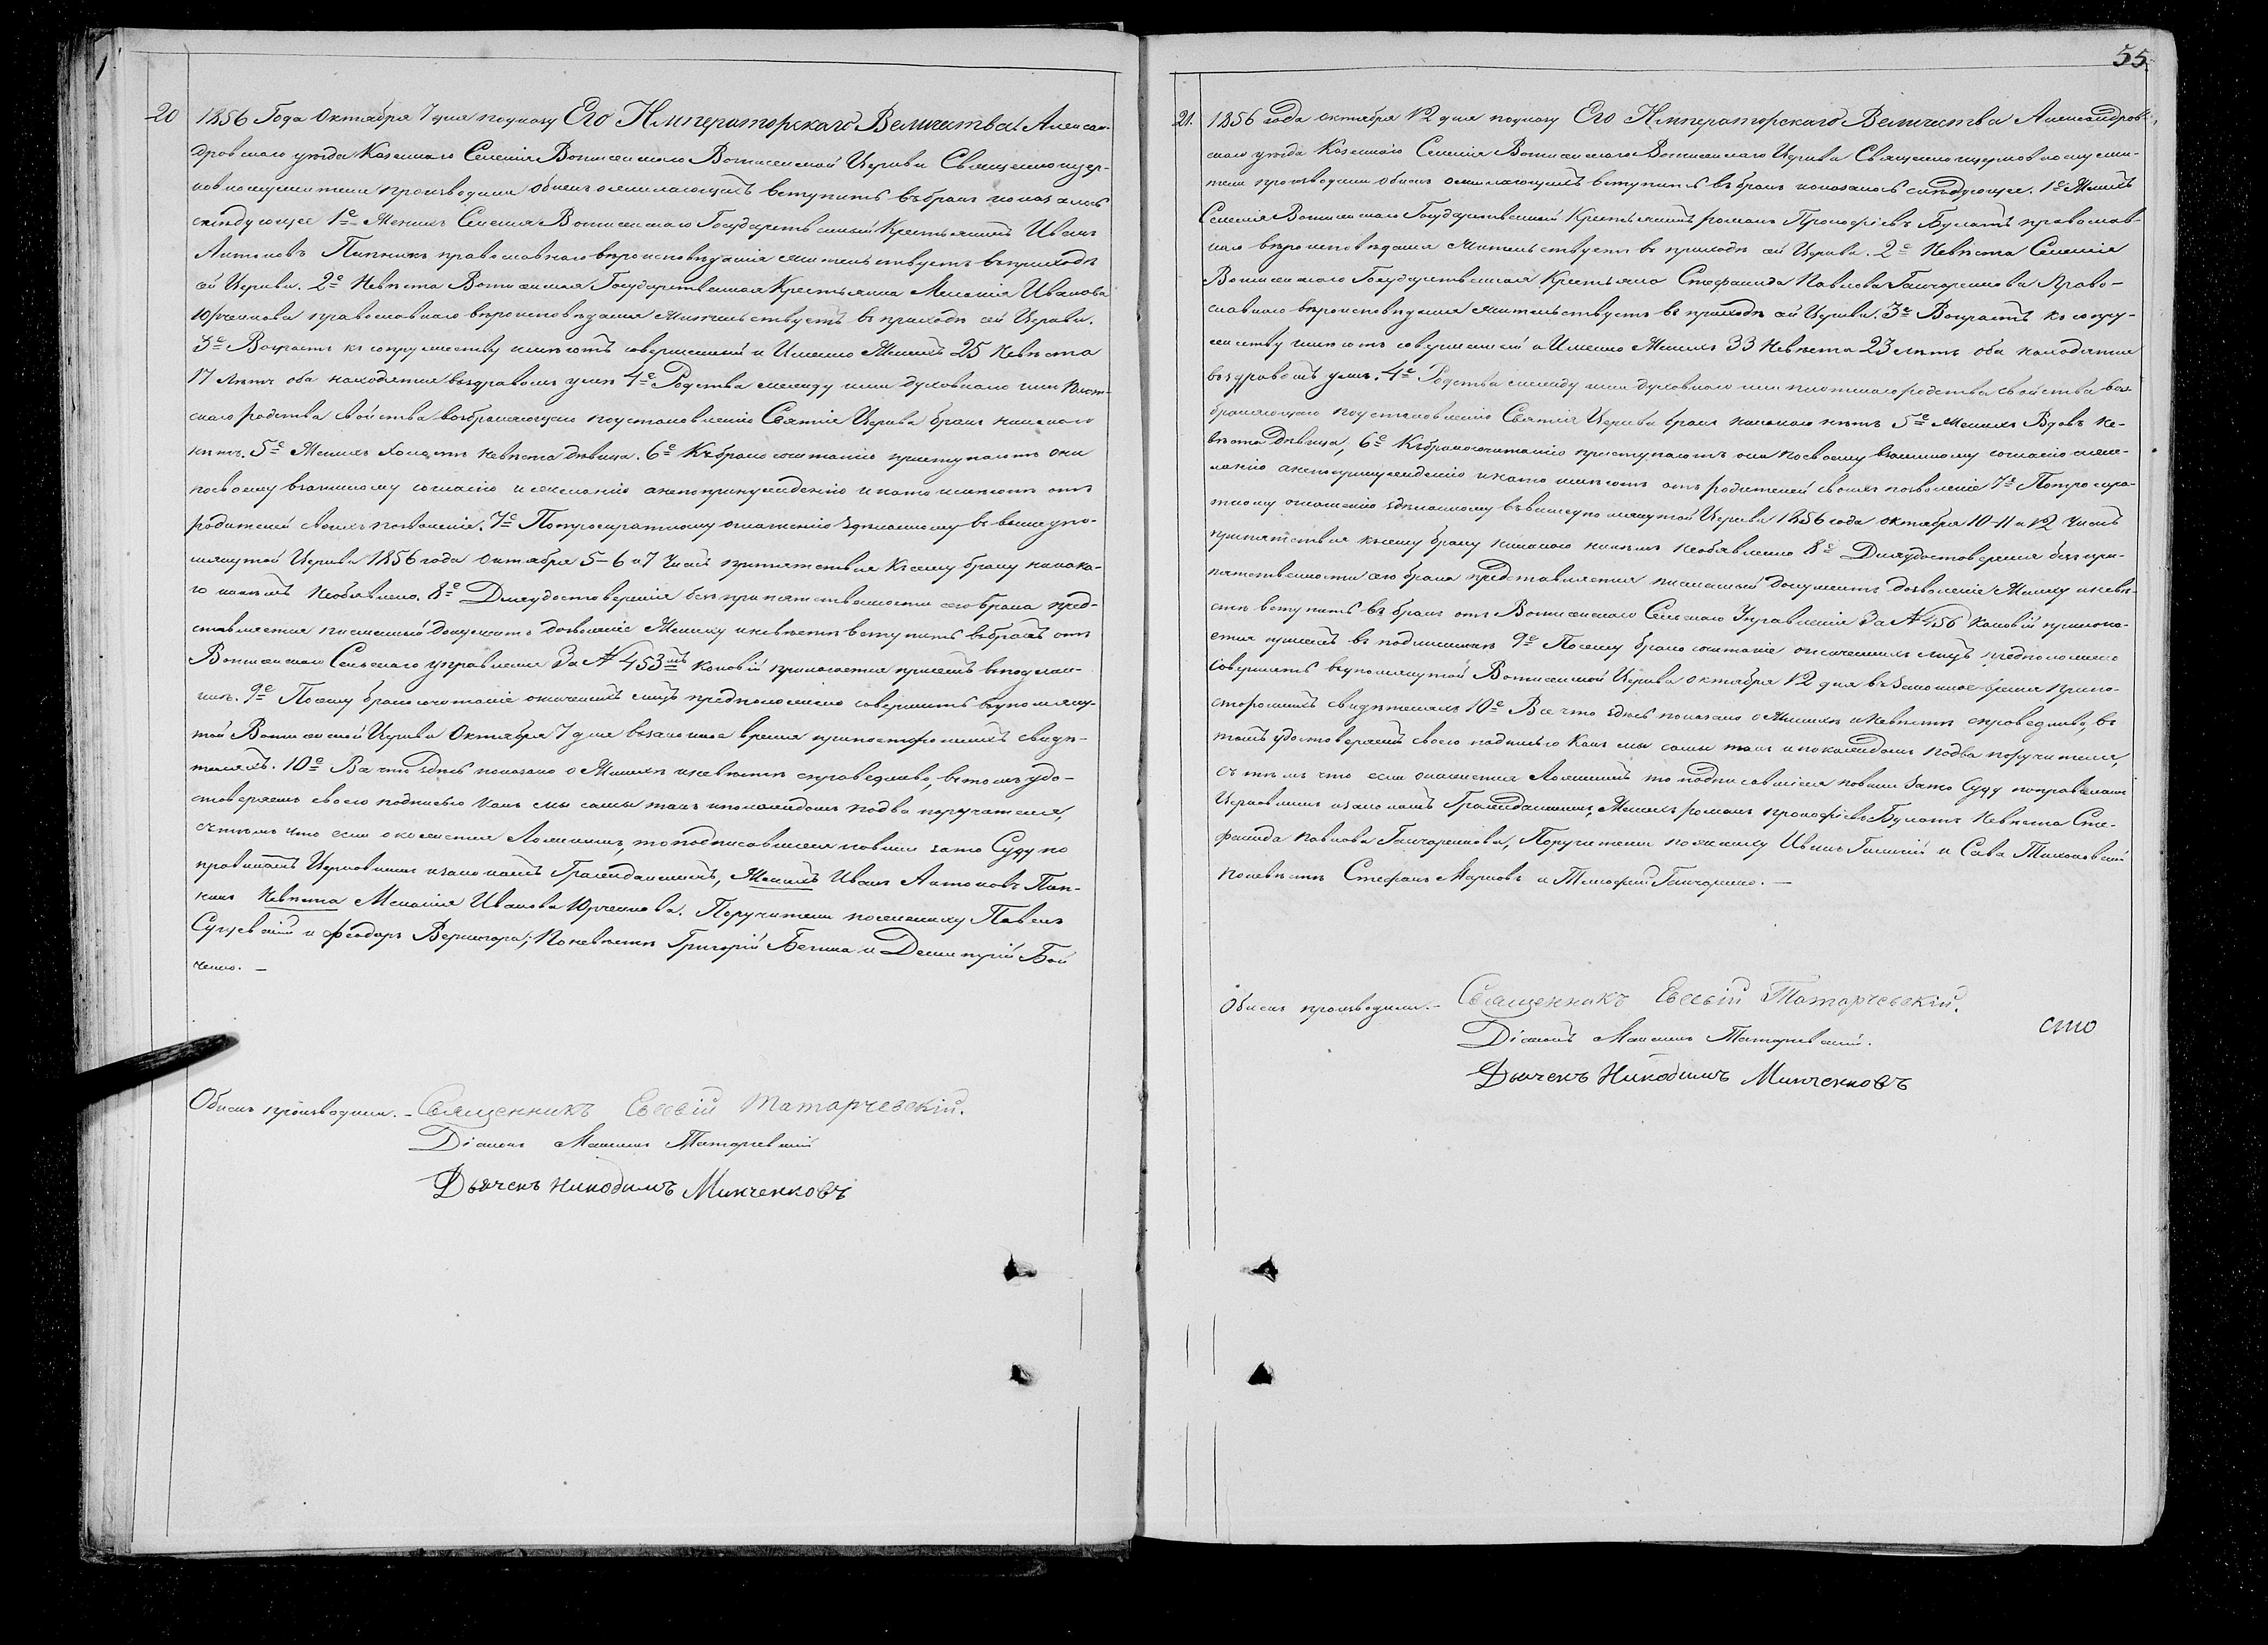 20
1856 Года Октября 7 дня поуказу Его Императорскаго Величества Алексан-
дровскаго уѣзда Казеннаго Селенія Воскресенской Церкви Священноцер-
ковнослужители производили обыскъ о желающихъ вступить въ бракъ и оказалось
слѣдующее 1е Женихъ Селенія Государственный Крестьянинъ Иванъ
Антоновъ православнаго вѣроисповѣданія жительствуетъ въ приходѣ
сей Церкви. 2е Невѣста Государственная Крестьянка Меланія Иванова
Юрченкова православнаго вѣроисповѣданія жительствуетъ въ приходѣ сей Церкви.
3е Возрастъ къ супружеству имѣютъ совершенный и Именно Женихъ 25 Невѣста
17 лѣтъ оба находятся въ здравомъ умѣ 4е Родства между ими духовнаго или плот-
скаго родства свойства возбраняющаго по установленію Святыя Церкви бракъ никакого
нѣтъ. 5е Женихъ холостъ невѣста дѣвица. 6е Къ бракосочетанію приступаютъ они
по своему взаимному согласію и желанію а не по принужденію и на то имѣютъ отъ
родителей своихъ позволеніе. 7е По троекратному оглашенію здѣланному въ вышеупо-
мянутой Церкви 1856 года Октября 5-6 и 7 числъ препятствія къ сему браку никако-
го никѣмъ необявлено. 8е Для удостовѣренія безпрепятственности сего брака пред-
ставляется письменный документъ дозволеніе Жениху и невѣстѣ вступить въ бракъ отъ
Сельскаго управленія За № 453мъ каковый прилагается присемъ въ подлин-
никѣ. 9е По сему бракосочетаніе означенныхъ лицъ предположено совершить въ упомяну-
той Церкви Октября 7 дня въ законное время при постороннихъ свидѣ-
теляхъ. 10е Все что здѣсь показано о Женихѣ и невѣстѣ справедливо, въ томъ удо-
стовѣряемъ своею подписью какъ мы сами такъ и по каждомъ по два поручителя,
съ тѣмъ что если окажется ложнымъ, то подписавшіеся повинны зато Суду по
правиламъ Церковнымъ и законамъ Гражданскимъ, Женихъ Иванъ Антоновъ
Невѣста Меланія Иванова Юрченкова. Поручители по женихѣ Павелъ
и Феодоръ Вернигора; По невѣстѣ Григорій и Димитрій Бой
ченко. —
Обыскъ производили. – Священникъ Евсевій Татарчевскій.
Діаконъ Татарчевскій
Дьячекъ Никодимъ Минченковъ
55.
21.
1856 года октября 12 дня поуказу Его Императорскаго Величества Александров-
скаго уѣзда Казеннаго Селенія Церкви Священноцерковнослужи-
тели производили обыскъ о желающихъ вступить въ бракъ и оказалось слѣдующее. 1е Женихъ
Селенія Государственный Крестьянинъ Романъ Прокофіевъ Булатъ православ-
наго вѣроисповѣданія жительствуетъ въ приходѣ сей Церкви. 2е Невѣста Селенія
Государственная Крестьянка Стефанида Павлова Гончаренкова Право-
славнаго вѣроисповѣданія жительствуетъ въ приходѣ сей Церкви. 3е Возрастъ къ супру-
жеству имѣютъ совершенный а Именно Женихъ 33 Невѣста 23 лѣтъ оба находятся
въ здравомъ умѣ. 4е Родства между ими духовнаго или плотскаго родства свойства воз-
браняющаго по установленію Святыя Церкви бракъ никакого нѣтъ 5е Женихъ Вдовъ Не-
вѣста Дѣвица, 6е Къ бракосочетанію приступаютъ они по своему взаимному согласію и же-
ланію а не по принужденію и на то имѣютъ отъ родителей своихъ позволеніе 7е По троекра-
тному оглашенію здѣланному въ вышеупомянутой Церкви 1856 года октября 10-11 и 12 числъ
препятствія къ сему браку никакого никѣмъ необявлено 8е Для удостоверенія безпре-
пятственности сего брака представляется письменный документъ дозволеніе Жениху и невѣ-
стѣ вступить въ бракъ отъ Сельскаго Управленія За № 456 каковый прилага-
ется присемъ въ подлинникѣ 9е По сему бракосочетаніе означенныхъ лицъ предположено
совершить въ упомянутой Церкви октября 12 дня въ законное время при по-
стороннихъ свидѣтеляхъ 10е Все что здѣсь показано о Женихѣ и невѣстѣ справедливо, въ
томъ удостоверяемъ своею подписью какъ мы сами такъ и по каждомъ по два поручителя,
съ тѣмъ что если окажется ложнымъ то подписавшіеся повинны зато Суду по правиламъ
Церковнымъ и законамъ Гражданскимъ, Женихъ Романъ Прокофіевъ Булатъ Невѣста Сте-
фанида Павлова Гончаренкова, Поручители по жениху Иванъ и Сава
по невѣстѣ Стефанъ Марковъ и Тимофей Гончаренко. —
Обыскъ производили. – Священникъ Евсевій Татарчевскій.
сто
Діаконъ Татарчевскій.
Дьячекъ Никодимъ Минченковъ